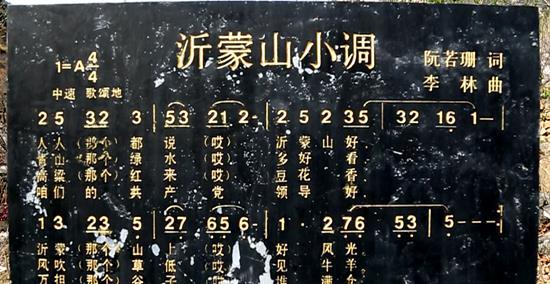 沂蒙山小调
1=A 4/4
中速 歌颂地
阮若珊 词
李林 曲
2 5 32 3 | 53 21 2- | 2 5 2 35 | 32 16 1— |
人人(那个)都说(哎)沂蒙山好
青山(那个)绿水(哎)多好看
高粱(那个)红来(哎)豆花香
咱们的共产(哎)党领导好
1 3 23 5 | 27 65 6- | 1· 2 76 53 | 5 - - - |
沂蒙(那个)山上(哎)好风光
风吹(那个)草低(哎)见牛羊
万担(那个)谷子(哎)堆满